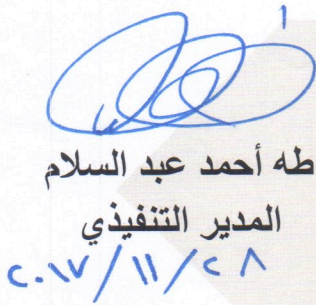 طه أحمد عبد السلام
المدير التنفيذي
٢٠١٧/١١/٢٨